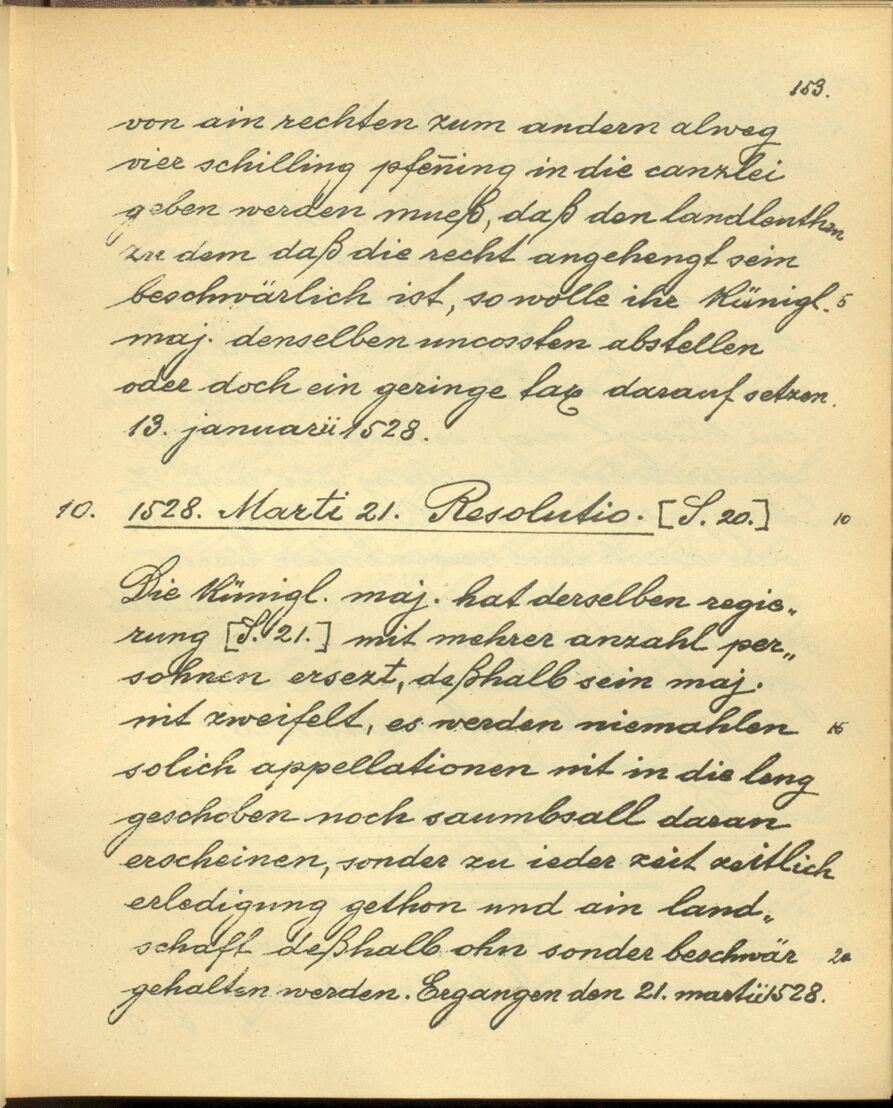 153.
von ain rechten zum andern alweg
vier schilling pfen̄ing in die canzlei
geben werden mueß, daß den landleuthen
zu dem daß die recht angehengt sein
beschwärlich ist, so wolle ihr Künigl. 5
maj. denselben uncossten abstellen
oder doch ein geringe tax darauf setzen.
13. januarii 1528.
10. 1528. Marti 21. Resolutio. [S. 20.] 10
Die Künigl. maj. hat derselben regie„
rung [S. 21.] mit mehrer anzahl per„
sohnen ersezt, deßhalb sein maj.
nit zweifelt, es werden niemahlen 15
solich appellationen nit in die leng
geschoben noch saumbsall daran
erscheinen, sonder zu ieder zeit zeitlich
erledigung gethon und ain land„
schaft deßhalb ohn sonder beschwär 20
gehalten werden. Ergangen den 21. martii 1528.